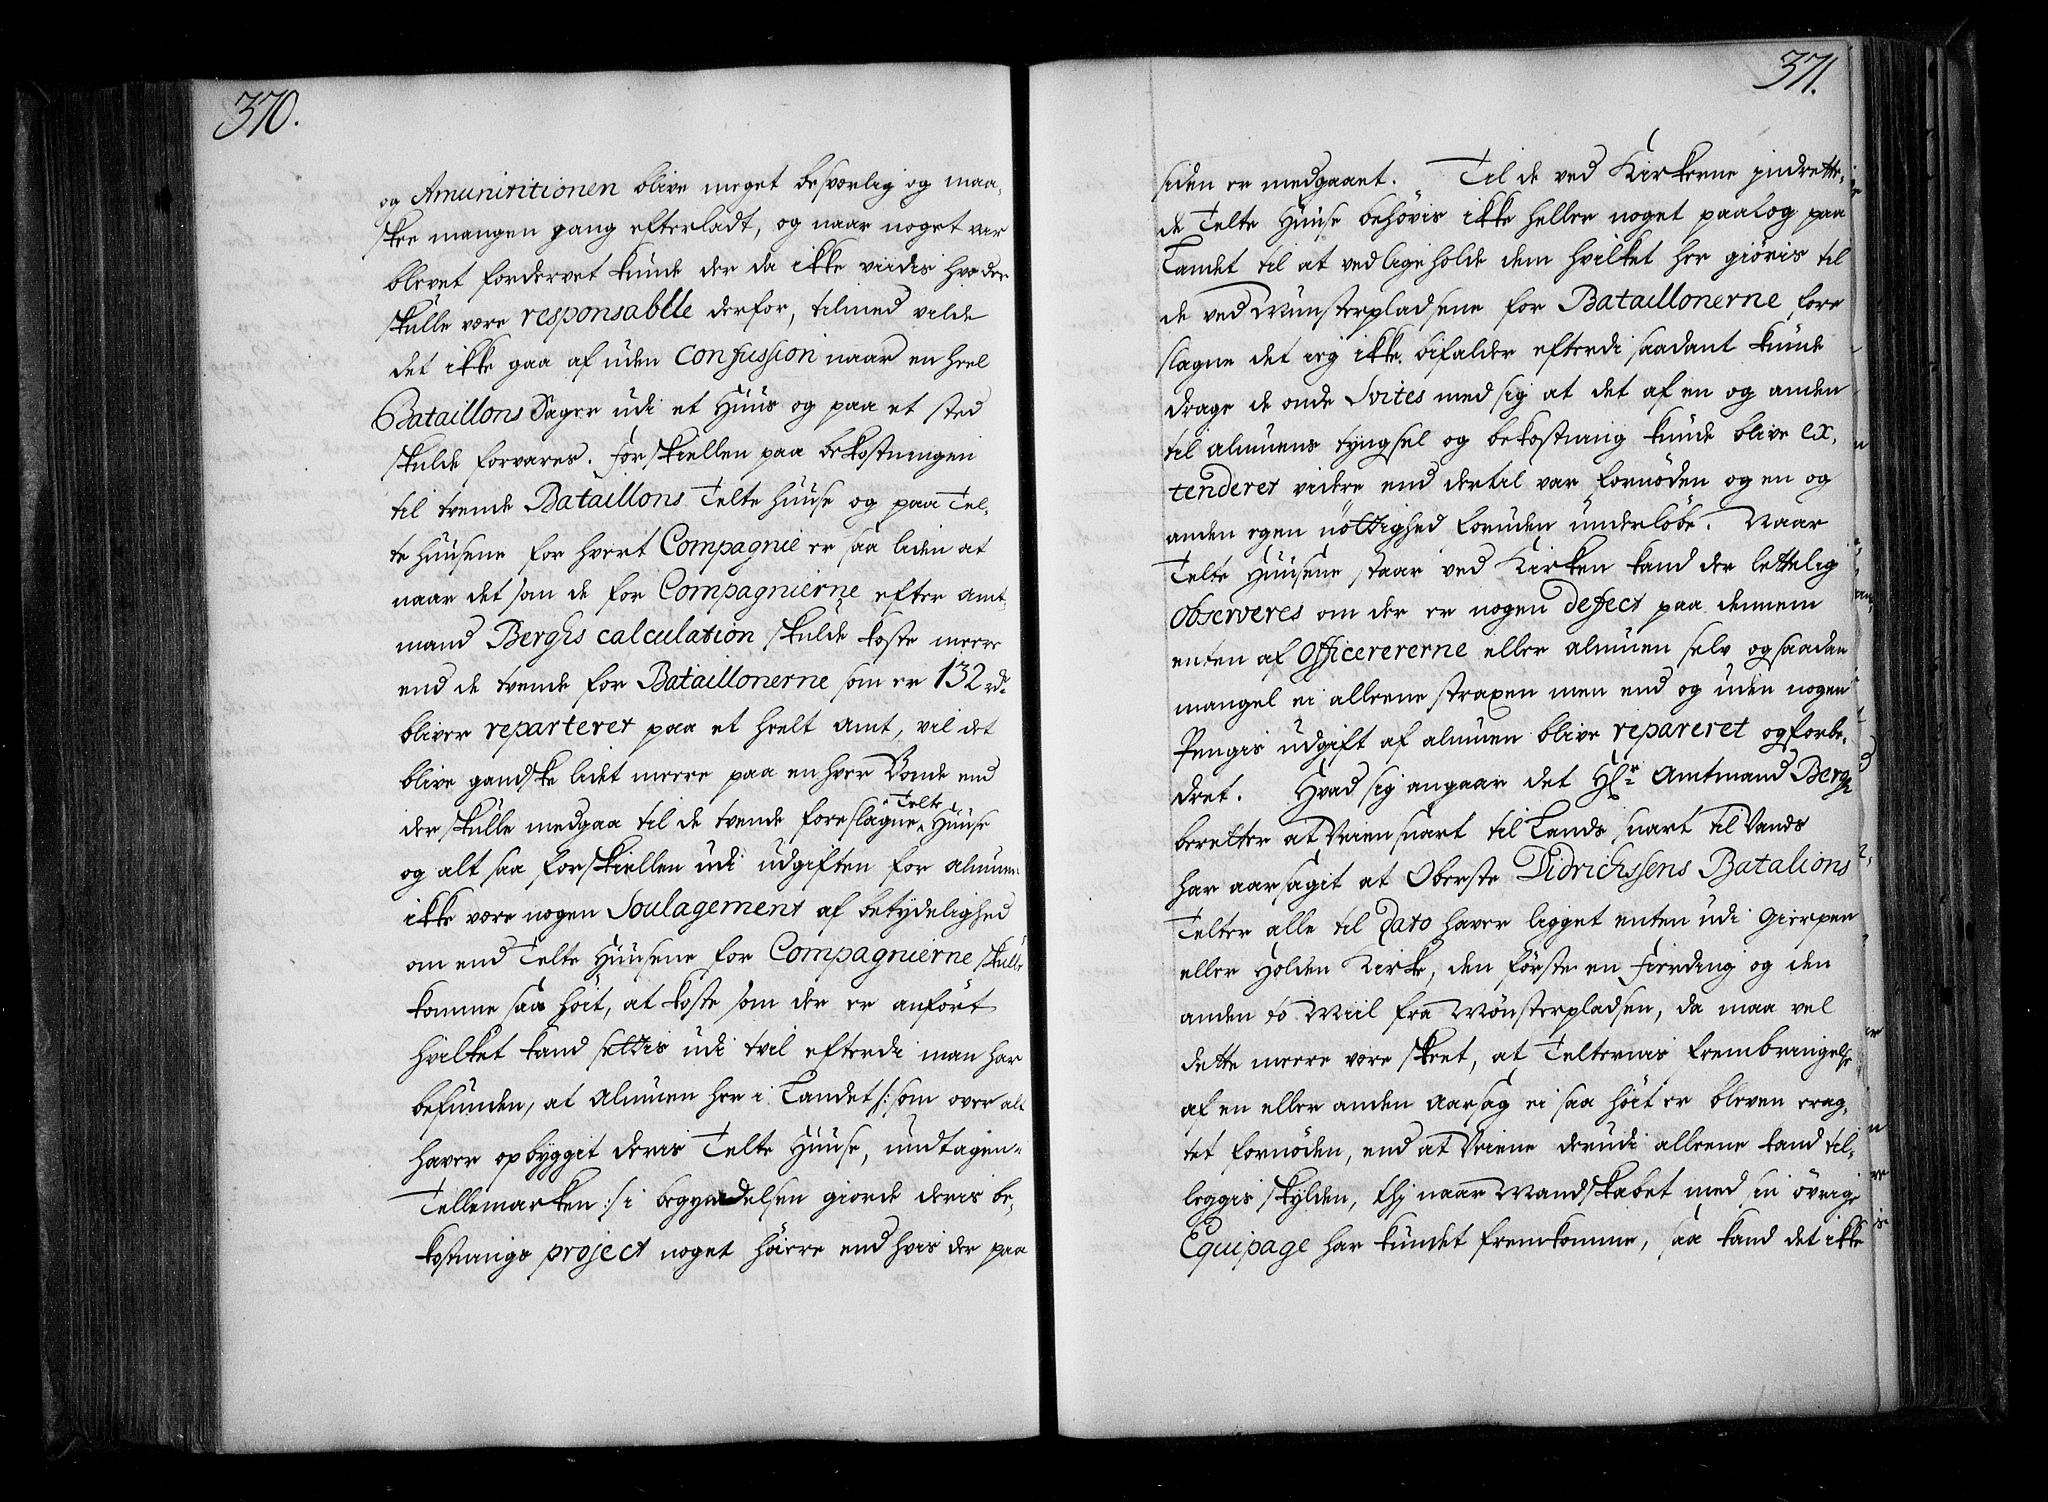 370.
og Amunixitionen blive meget besværlig og maa,
skee mangen gang efterladt, og naar noget var
blevet fordervet kunde der da ikke viidis hvo der
skulle være responsablle derfor, tilmed vilde
det ikke gaa af uden confussion naar en heel
Bataillons Sager udi et Huus og paa et sted
skulde forvares. forskiellen paa bekostningen
til tvende Bataillons Telte Huuse og paa Tel,
te Huusene for hvert Compagnie er saa liden at
naar det som de for Compagnierne efter Amt,
mand Berghs calculation skulde koste meere
end de tvende for Bataillonerne som er 132 rdr
bliver reparteret paa et heelt Amt, vil det
blive gandske lidet meere paa en hver Bonde end
der skulle medgaa til de tvende foreslagne Telte Huuse
og alt saa forskiellen udi udgiften for almuen
ikke være nogen Soulagement af betydelighed
om end Telte Huusene for Compagnierne skulle
komme saa høit, at koste som der er anført
hvilket kand settis udi tvil efterdi man har
befunden, at Almuen her i Landet /: som over alt
haver opbygget deris Telte Huuse, undtagen
Tellemarken :/ i begyndelsen giorde deris be,
kostnings project noget høiere end hvis der paa
371.
siden er medgaaet. Til de ved Kirkerne indrette,
de Telte Huuse behøvis ikke heller noget paalog paa
Landet til at vedligeholde dem hvilket her giøris til
de ved Munsterpladsene for Bataillonerne fore
slagne det ieg ikke bifalder efterdi saadant kunde
drage de onde Svites med sig at det af en og anden
til almuens tyngsel og bekostning kunde blive ex,
tenderet videre end dertil var fornøden og en og
anden egen nøttighed foruden underløbe. Naar
Telte Huusene staar ved Kirken kand der lettelig
observeres om der er nogen defect paa dennem
enten af Officererne eller almuen selv og saadan
mangel ei alleene straxen men end og uden nogen
Pengis udgift af almuen blive repareret og forbe,
dret. Hvad sig angaar det Hr Amtmand Bergh
beretter at Veien snart til Lands snart til Vands
har aarsagit at Oberste Didrichssens Batalions
Telter alle til Dato haver ligget enten udi Gierpen
eller Holden Kirke, den første en Fierding og den
anden to Miil fra Mønsterpladsen, da maa vel
dette meere være skeet, at Telternis frembringelse
af en eller anden Aarsag ei saa høit er bleven erag,
tet fornøden, end at Veiene derudi alleene kand til,
leggis skylden, thj naar Mandskabet med sin øvrige
Equipage har kundet fremkomme, saa kand det ikke